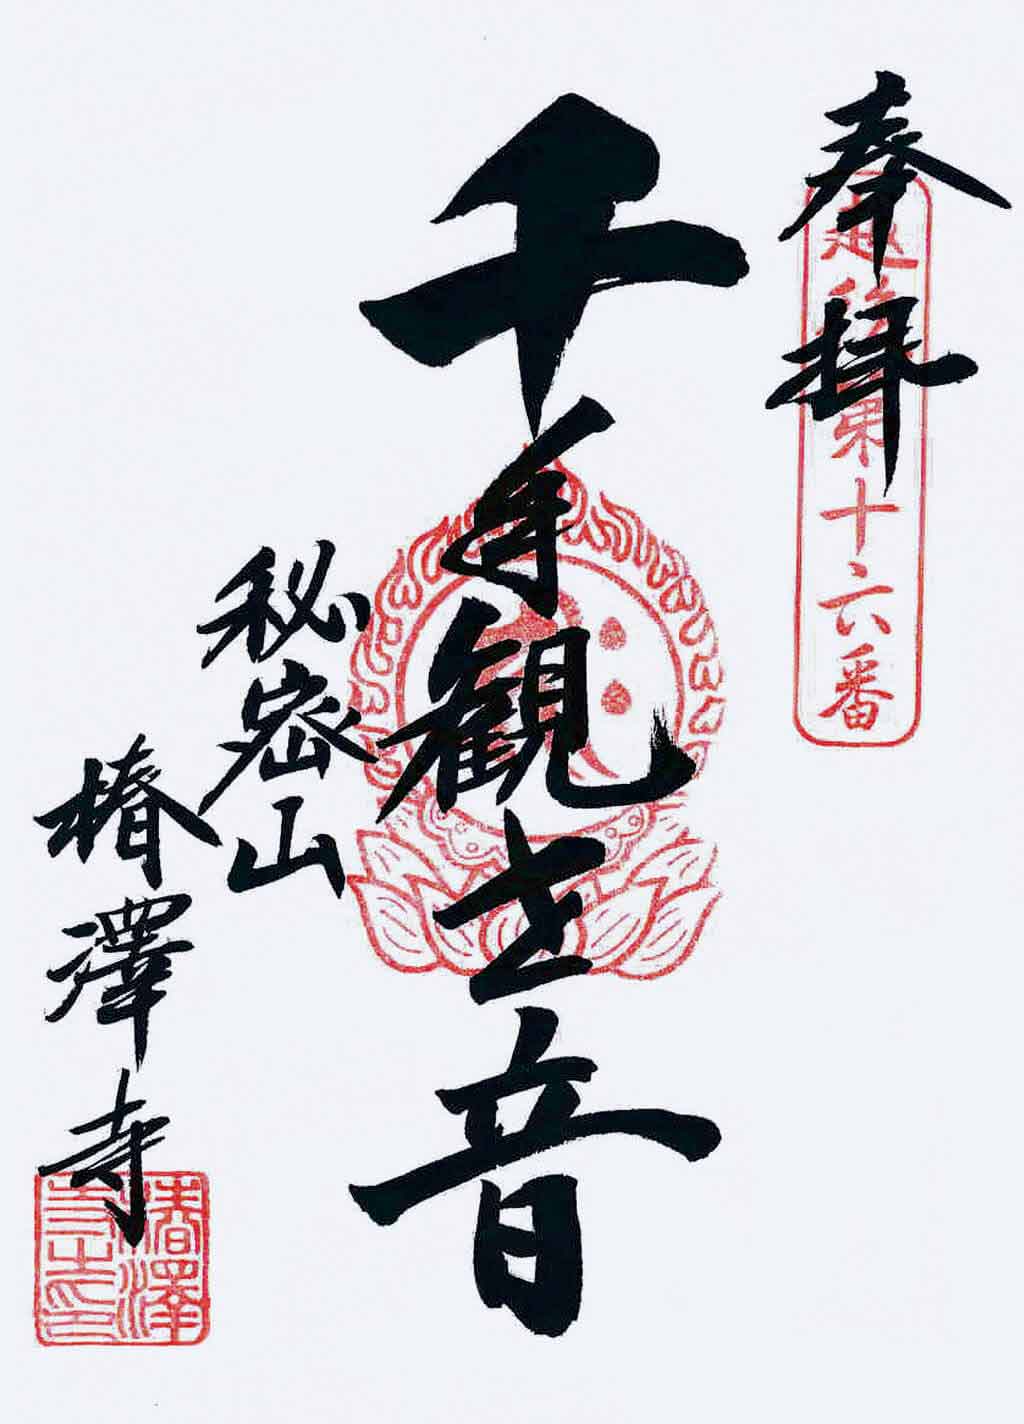 奉拝
越後第十六番
千手観世音
秘密山
椿澤寺
椿澤寺之印